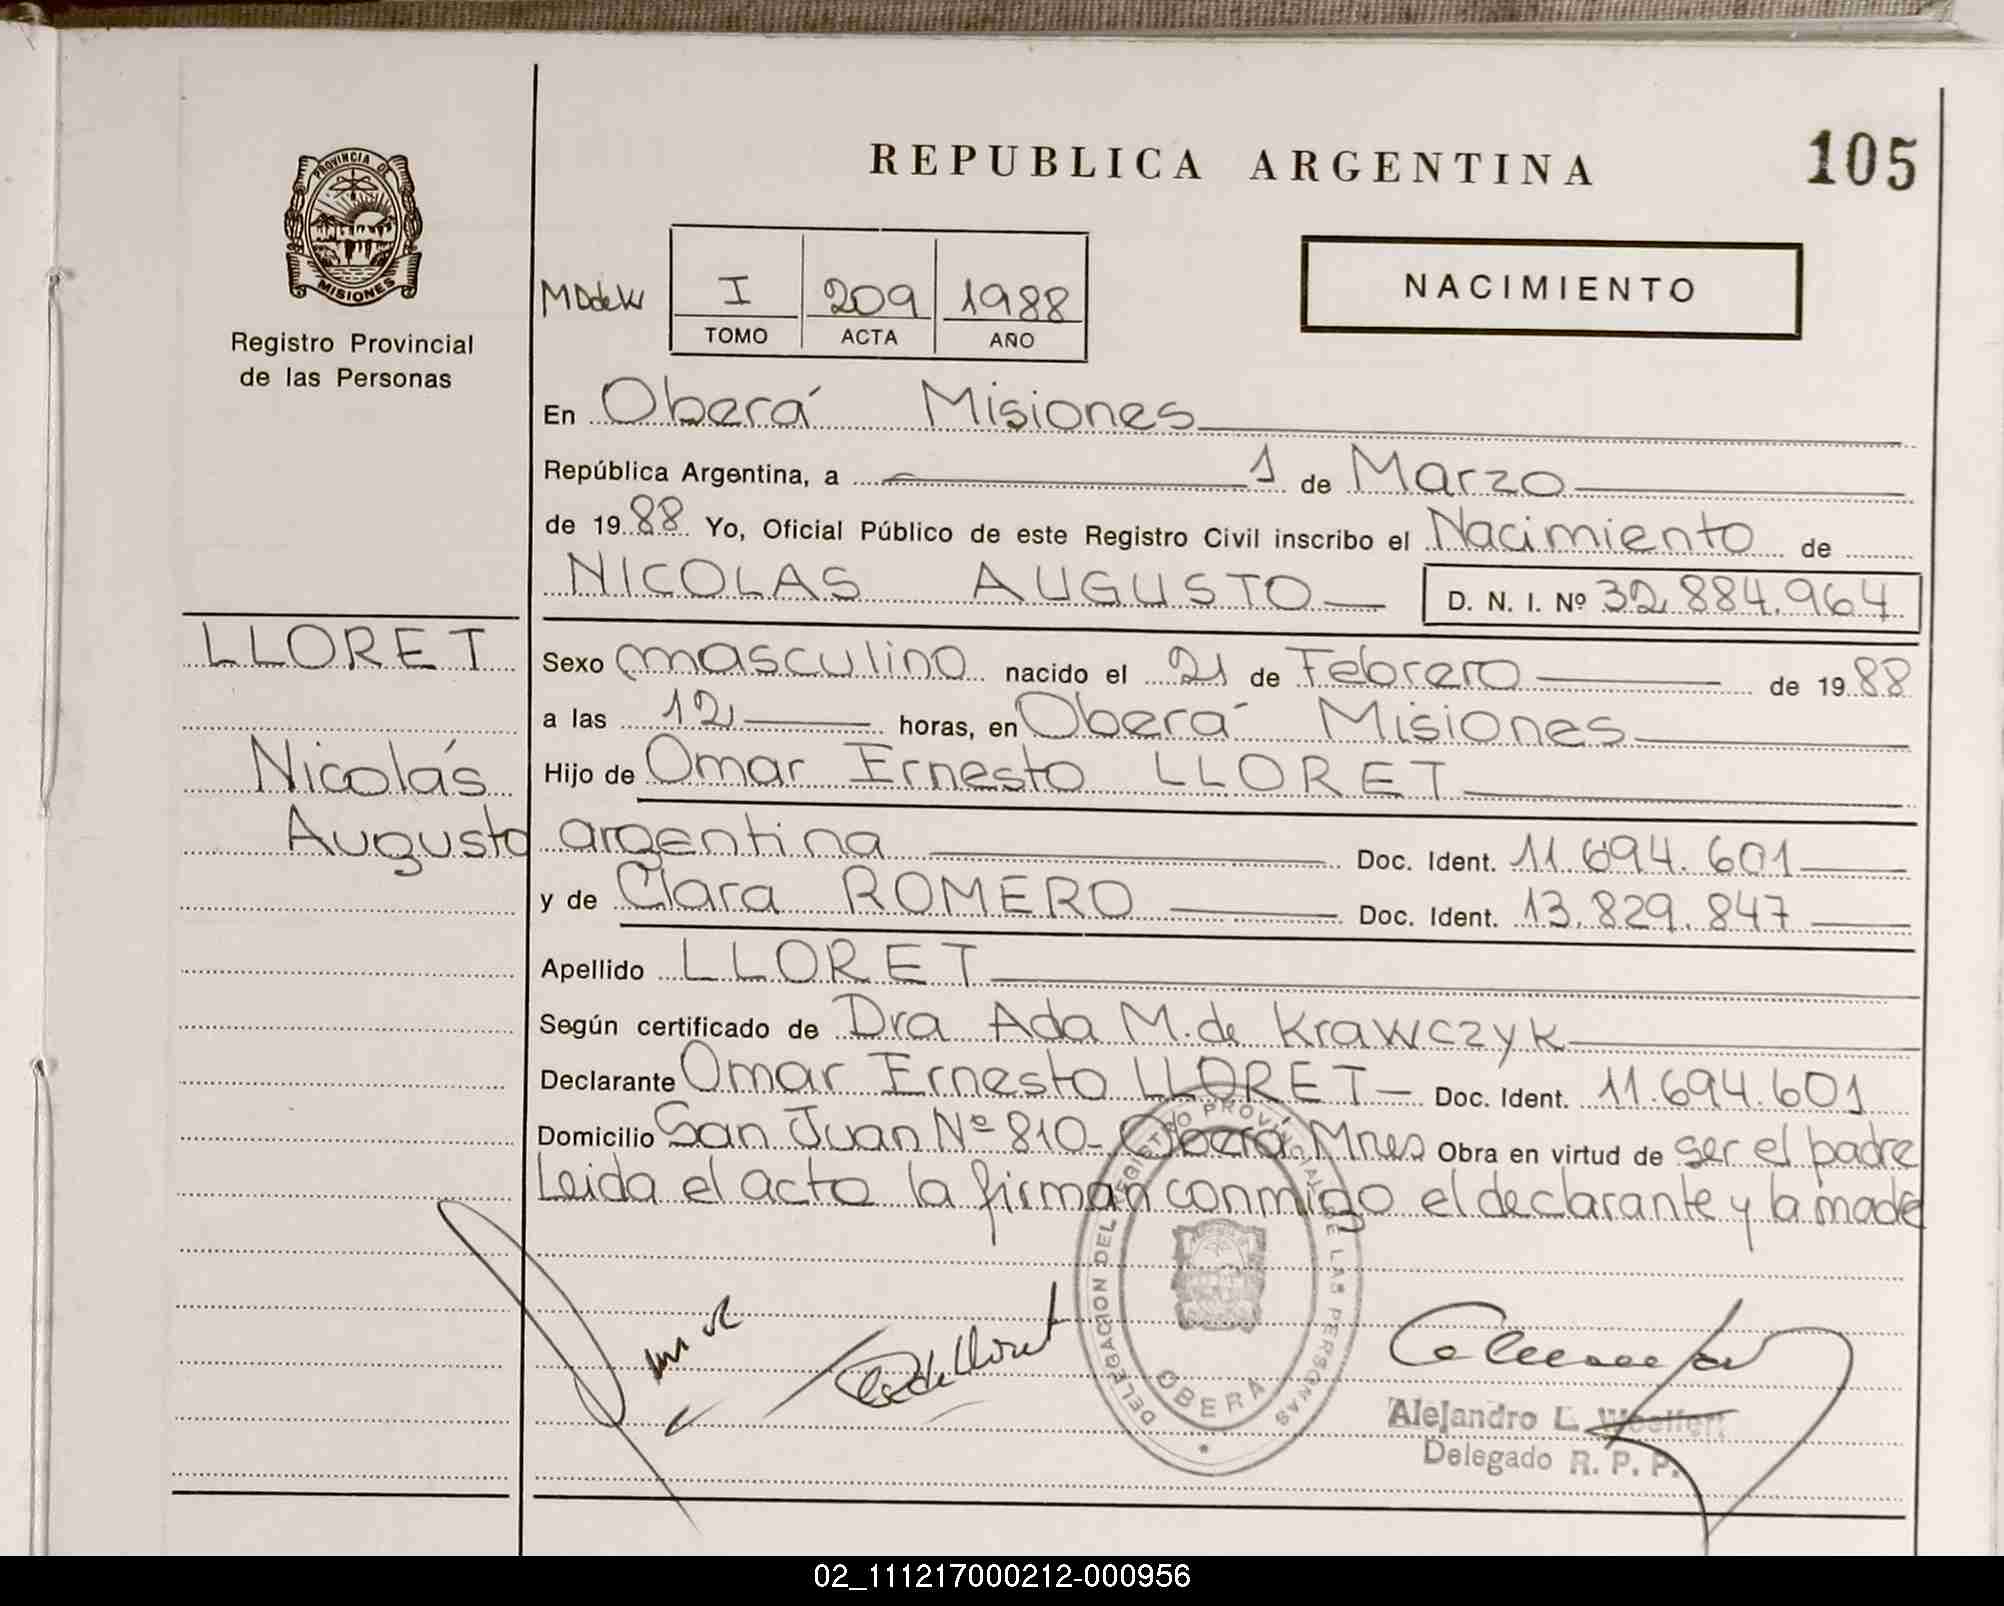 PROVINCIA DE
MISIONES
Registro Provincial
de las Personas
REPUBLICA ARGENTINA 105
NACIMIENTO
I 209 1988
TOMO ACTA AÑO
En Oberá Misiones
República Argentina, a 1 de Marzo
de 1988 Yo, Oficial Público de este Registro Civil inscribo el Nacimiento de
NICOLAS AUGUSTO D. N. I. Nº 32.884.964
LLORET
Nicolás
Augusto
Sexo masculino nacido el 21 de Febrero de 1988
a las 12 horas, en Oberá Misiones
Hijo de Omar Ernesto LLORET
argentina Doc. Ident. 11.694.601
y de Clara ROMERO Doc. Ident. 13.829.847
Apellido LLORET
Según certificado de Dra Ada M. de Krawczyk
Declarante Omar Ernesto LLORET Doc. Ident. 11.694.601
Domicilio San Juan Nº 810 - Oberá Mnes Obra en virtud de ser el padre
Leida el acto la firman conmigo el declarante y la madre
DELEGACION DEL REGISTRO PROVINCIAL DE LAS PERSONAS
OBERA
de Lloret
Alejandro L.
Delegado R. P. P.
02_111217000212-000956